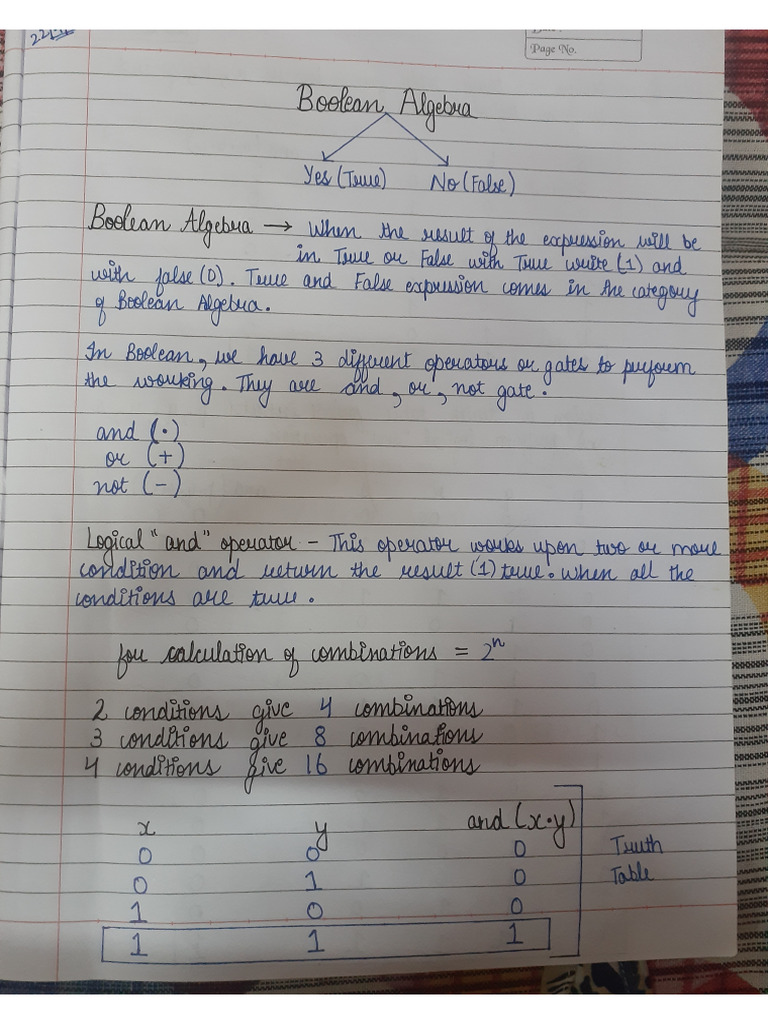 Page No.
Boolean Algebra
Yes (True) No (False)
Boolean Algebra → When the result of the expression will be
in True or False with True write (1) and
with false (0). True and False expression comes in the category
of Boolean Algebra.
In Boolean, we have 3 different operators or gates to perform
the working. They are and, or, not gate.
and (·)
or (+)
not (-)
Logical "and" operator - This operator works upon two or more
condition and return the result (1) true. When all the
conditions are true.
for calculation of combinations = 2ⁿ
2 conditions give 4 combinations
3 conditions give 8 combinations
4 conditions give 16 combinations
x y and (x·y)
0 0 0 Truth
0 1 0 Table
1 0 0
1 1 1